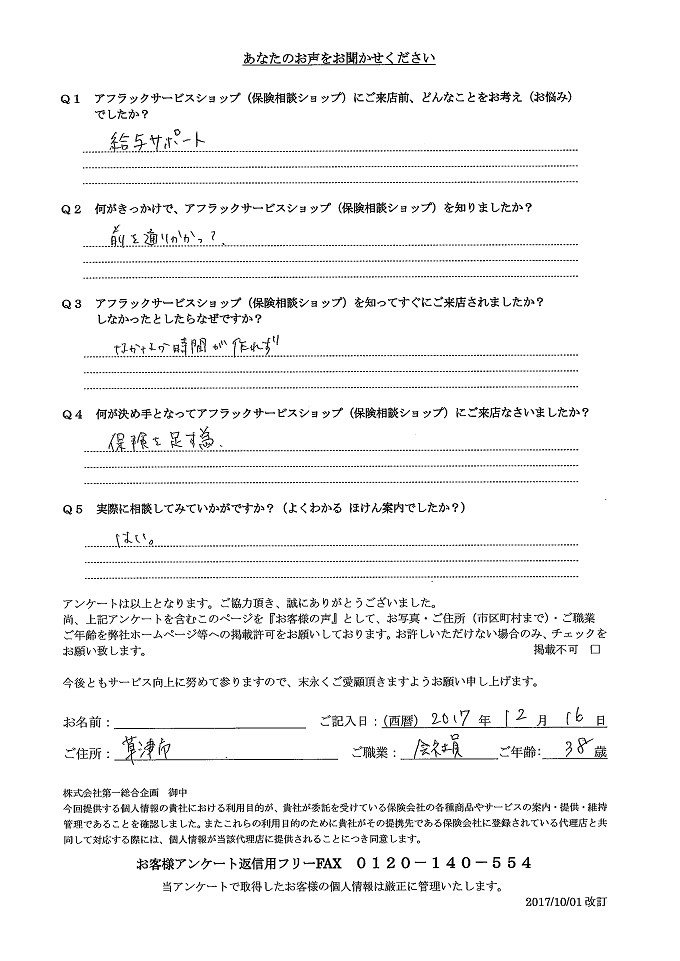 あなたのお声をお聞かせください
Q1 アフラックサービスショップ(保険相談ショップ)にご来店前、どんなことをお考え(お悩み)
でしたか?
給与サポート
Q2 何がきっかけで、アフラックサービスショップ(保険相談ショップ)を知りましたか?
前を通りかかって、
Q3 アフラックサービスショップ(保険相談ショップ)を知ってすぐにご来店されましたか?
しなかったとしたらなぜですか?
なかなか時間が作れず
Q4 何が決め手となってアフラックサービスショップ(保険相談ショップ)にご来店なさいましたか?
保険を足す為、
Q5 実際に相談してみていかがですか?(よくわかる ほけん案内でしたか?)
はい。
アンケートは以上となります。ご協力頂き、誠にありがとうございました。
尚、上記アンケートを含むこのページを『お客様の声』として、お写真・ご住所(市区町村まで)・ご職業
ご年齢を弊社ホームページ等への掲載許可をお願いしております。お許しいただけない場合のみ、チェックを
お願い致します。 掲載不可 □
今後ともサービス向上に努めて参りますので、末永くご愛顧頂きますようお願い申し上げます。
お名前: ご記入日:(西暦) 2017 年 12 月 16 日
ご住所: 草津市 ご職業: 会社員 ご年齢: 38 歳
株式会社第一総合企画 御中
今回提供する個人情報の貴社における利用目的が、貴社が委託を受けている保険会社の各種商品やサービスの案内・提供・維持
管理であることを確認しました。またこれらの利用目的のために貴社がその提携先である保険会社に登録されている代理店と共
同して対応する際には、個人情報が当該代理店に提供されることにつき同意します。
お客様アンケート返信用フリーFAX 0120-140-554
当アンケートで取得したお客様の個人情報は厳正に管理いたします。
2017/10/01 改訂